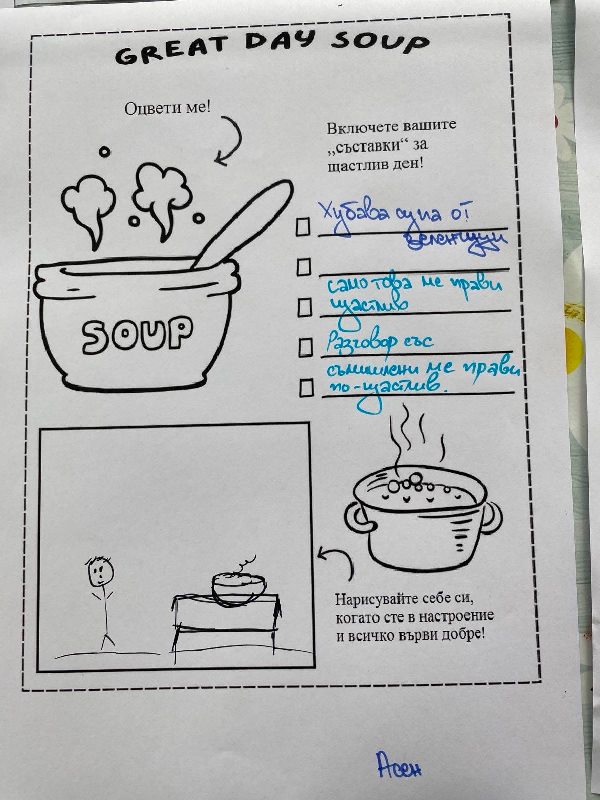 GREAT DAY SOUP
Оцвети ме!
Включете вашите
„съставки“ за
щастлив ден!
Хубава супа от
зеленчуци
само това ме прави
щастлив
Разговор със
съмишлени ме прави
по-щастлив.
SOUP
Нарисувайте себе си,
когато сте в настроение
и всичко върви добре!
Асен